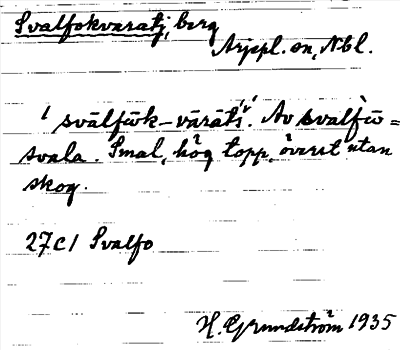 Svalfokvaratj, berg
Arjpl. sn, Nbl.
svālfūk-vārātj. Av svalfō =
svala. Smal, hög topp, överst utan
skog.
27C1 Svalfo
H. Grundström 1935